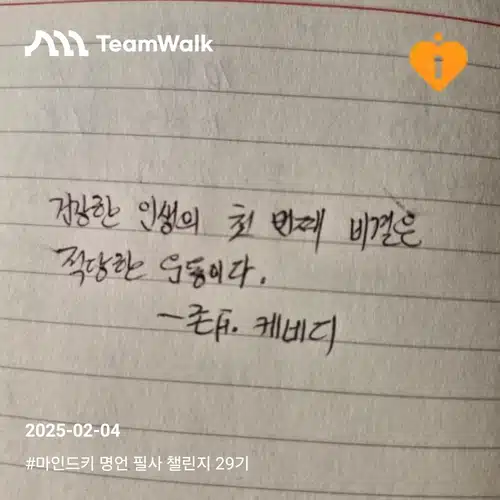 TeamWalk
건강한 인생의 첫 번째 비결은
적당한 운동이다.
-존F. 케네디
2025-02-04
#마인드키 명언 필사 챌린지 29기